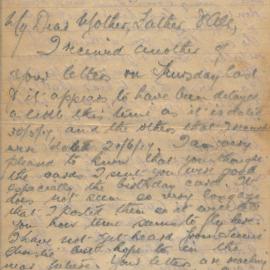 My Dear Mother, Father, & All,
I received another of
your letters on Thursday last
& it appears to have been delayed
a little this time as it is dated
30/5/17, and the others that I received
were dated 20/6/17. I am very
pleased to know that you thought
the cards I sent you were good
especially the birthday card. It
does not seem so very long ago
that I posted them as it
you how time seems to fly here.
I have not yet heard from
but hope to in the
near future. Your letters are reaching